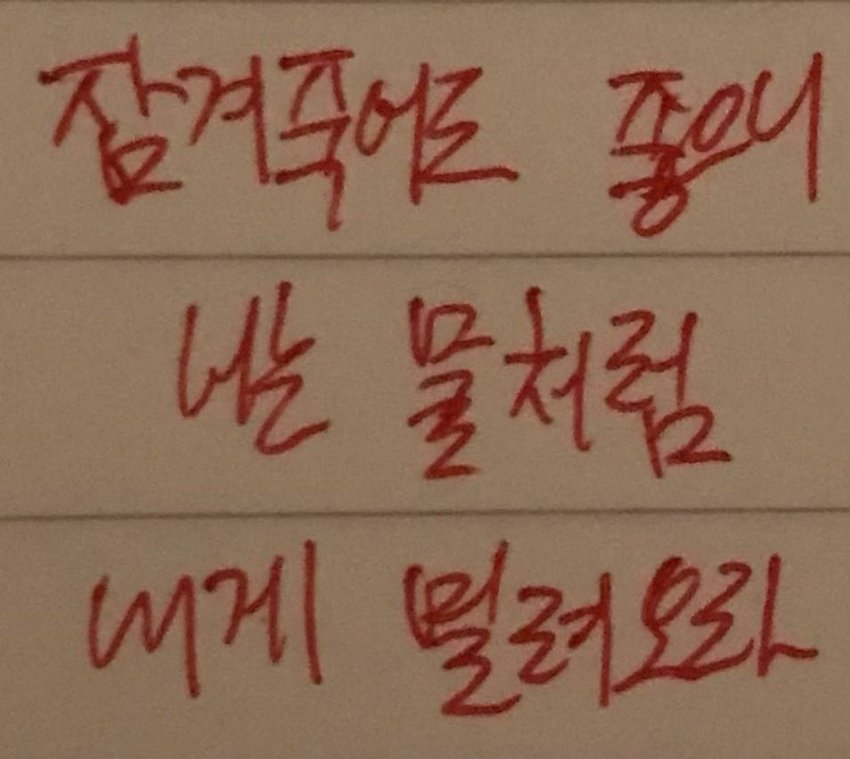 잠겨죽어도 좋으니
너는 물처럼
내게 밀려오라